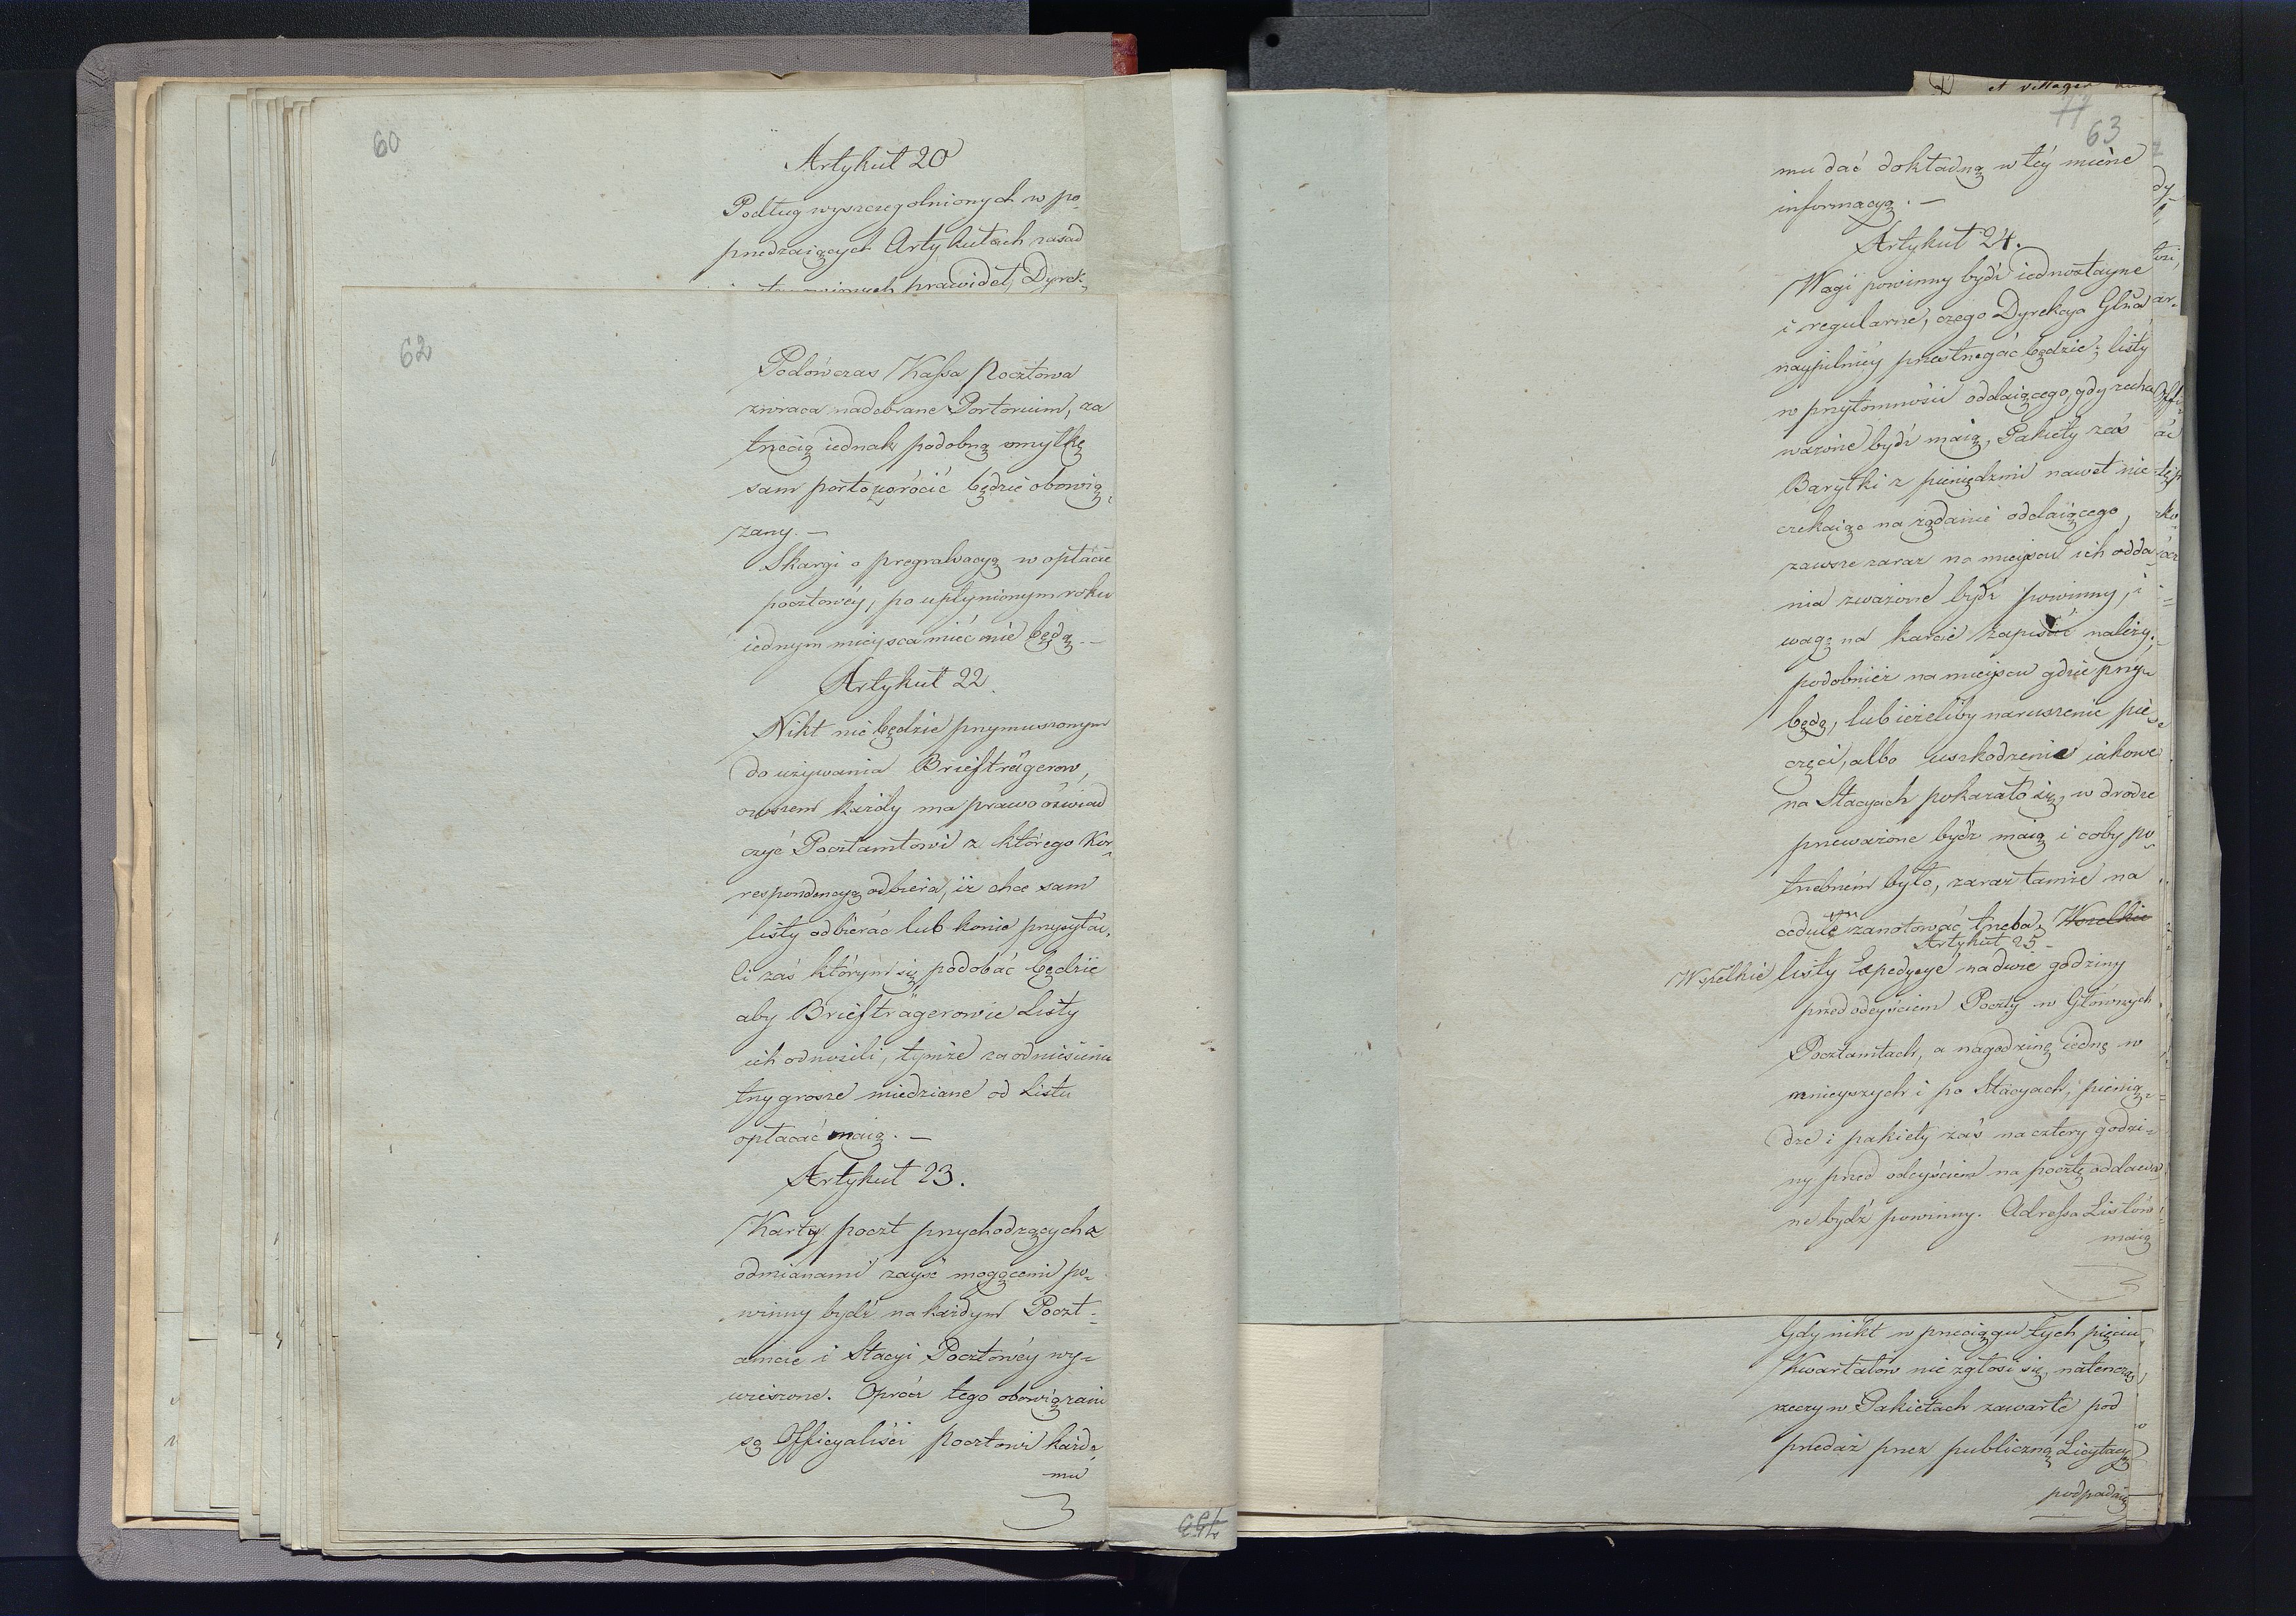 60
Artykuł 20
Podług wyszczegolnionych w po-
przedzaiących Artykułach zasad
prawideł, Dyrek-
62
Podówczas Kassa Pocztowa
zwraca nadebrane Portorium, za
trzecią iednak podobną omyłkę
sam porto wrócić będzie obowią-
zany. —
Skargi o pregrawacyą w opłacie
pocztowéy, po upłynionym roku
iednym mieysca mieć nie będą. —
Artykuł 22.
Nikt nie będzie przymuszonym
do używania Briefträgerow,
owszem każdy ma prawo oświad
czyć Pocztamtowi z którego Kor-
respondencyą odbiera, iż chce sam
listy odbierać lub konie przysyłać,
ci zaś którym się podobać będzie
aby Briefträgerowie Listy
ich odnosili, tymże za odniesienie
trzy grosze miedziane od Listu
opłacać maią. —
Artykuł 23.
Karty poczt przychodzących z
odmianami zayść mogącemi po-
winny bydź na każdym Poczt-
amcie i Stacyi Pocztowéy wy-
wieszone. Oprócz tego obowiązani
są Officyaliści pocztowi każde-
mu
77
63
mu dać dokładną w téy mierze
informacyą. —
Artykuł 24.
Wagi powinny bydź iednostayne
i regularne, czego Dyrekcya Głna
naypilniéy przestrzegać będzie; listy
w przytomności oddaiącego, gdy zecha
ważone bydź maią, Pakiety zaś
Baryłki z pieniędzmi nawet nie
czekaiąc na żądanie oddaiącego,
zawsze zaraz na mieyscu ich odda
nia zważone bydź powinny, i
wagę na karcie zapisać należy,
podobnież na mieyscu gdzie przy-
będą, lub ieżeliby naruszenie pie-
częci, albo uszkodzenie iakowe
na Stacyach pokazało się, w drodze
przeważone bydź maią i coby po-
trzebném było, zaraz tamże na
cedule zanotować trzeba, Wszelkie
Artykuł 25 -
Wszelkie listy Expedycyé na dwie godziny
przed odeyściem Poczty w Głównych
Pocztamtach, a na godzinę iednę w
mnieyszych i po Stacyach, pienią-
dze i pakiety zaś na cztery godzi-
ny przed odeyściem na pocztę oddawa
ne bydź powinny. Adressa Listów
maią
Gdy nikt w przeciągu tych pięciu
Kwartałów nie zgłosi się, natenczas
rzeczy w Pakietach zawarte pod
przedaż przez publiczną Licytacyą
podpadaią